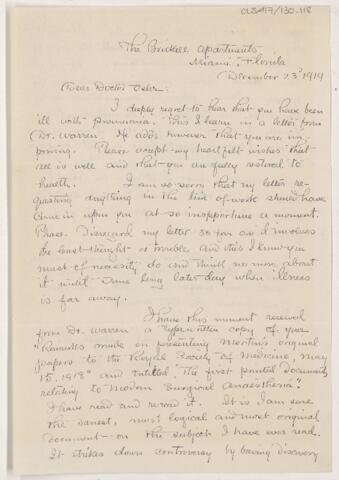 CUS417/130.118
The Brickell Apartments
Miami, Florida
December 23rd 1919
Dear Doctor Osler:
I deeply regret to hear that you have been
ill with pneumonia. This I learn in a letter from
Dr. Warren. He adds however that you are im-
proving. Please accept my heartfelt wishes that
all is well and that you are fully restored to
health.
I am so sorry that my letter re-
questing anything in the line of work should have
come in upon you at so inopportune a moment.
Please disregard my letter so far as it involves
the least thought or trouble and this I know you
must of necessity do and think no more about
it until some long later day when illness
is far away.
I have this moment received
from Dr. Warren a typewritten copy of your
"Remarks made on presenting Morton's original
papers to the Royal Society of Medicine, May
15, 1918" and entitled "The first printed documents
relating to Modern Surgical Anaesthesia".
I have read and reread it. It is I am sure
the sanest, most logical and most original
document on the subject I have ever read.
It strikes down controversy by basing discovery